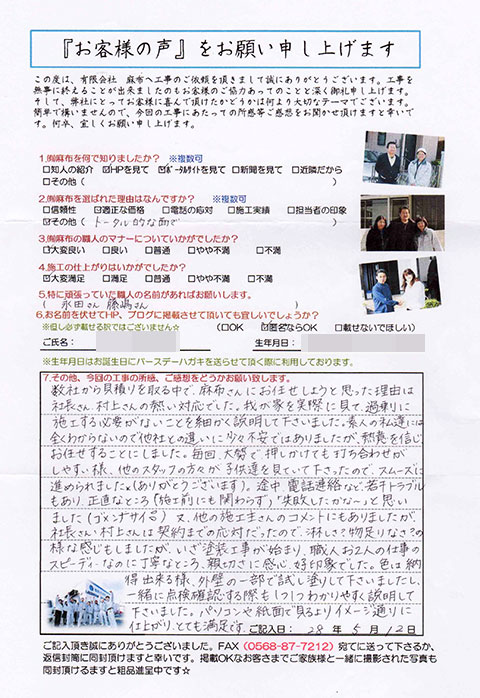 『お客様の声』をお願い申し上げます
この度は、有限会社　麻布へ工事のご依頼を頂きまして誠にありがとうございます。工事を
無事に終えることが出来ましたのもお客様のご協力あってのことと深く御礼申し上げます。
そして、弊社にとってお客様に喜んで頂けたかどうかは何より大切なテーマでございます。
簡単で構いませんので、今回の工事にあたっての所感等ご感想をお聞かせ頂けますと幸いで
す。何卒、宜しくお願い申し上げます。
1.㈲麻布を何で知りましたか？　※複数可
□知人の紹介　☑HPを見て　☑ポータルサイトを見て　□新聞を見て　□近隣だから
□その他（　　　　　）
2.㈲麻布を選ばれた理由はなんですか？　※複数可
□信頼性　☑適正な価格　□電話の応対　□施工実績　□担当者の印象
☑その他（トータル的な面で　　　）
3.㈲麻布の職人のマナーについていかがでしたか？
☑大変良い　□良い　□普通　□やや不満　□不満
4.施工の仕上がりはいかがでしたか？
☑大変満足　□満足　□普通　□やや不満　□不満
5.特に頑張っていた職人の名前があればお願いします。
（　永田さん　藤嶋さん　　　）
6.お名前を伏せてHP、ブログに掲載させて頂いても宜しいでしょうか？
※但し必ず載せる訳ではございません☆　（□OK　☑匿名ならOK　□載せないでほしい）
ご氏名：　　　生年月日：
※生年月日はお誕生日にバースデーハガキを送らせて頂く際に利用しております。
7.その他、今回の工事の所感、ご感想をどうかお願い致します。
数社から見積りを取る中で、麻布さんにお任せしようと思った理由は
社長さん、村上さんの熱い対応でした。我が家を実際に見て、過剰に
施工する必要がないことを細かく説明して下さいました。素人の私達には
全くわからないので他社との違いに少々不安ではありましたが、熱意を信じ
お任せすることにしました。毎回、大勢で押しかけても打ち合わせが
しやすい様、他のスタッフの方々が子供達を見ていて下さったので、スムーズに
進められました(ありがとうございます)。途中、電話連絡など、若干トラブル
もあり、正直なところ(施工前にも関わらず)「失敗したかな〜」と思い
ました(ゴメンナサイ)　又、他の施主さんのコメントにもありましたが、
社長さん、村上さんは契約までの応対だったので、淋しさ？物足りなさ？の
様な感じもしましたが、いざ塗装工事が始まり、職人お2人の仕事の
スピーディーなのに丁寧なところ、親切さに感心、好印象でした。色は納
得出来る様、外壁の一部で試し塗りして下さいましたし、
一緒に点検確認する際も1つ1つわかりやすく説明して
下さいました。パソコンや紙面で見るよりイメージ通りに
仕上がり、とても満足です。ご記入日：28年5月12日
ご記入頂き誠にありがとうございました。FAX（0568-87-7212）宛てに送って下さるか、
返信封筒に同封頂けますと幸いです。掲載OKなお客さまでご家族様と一緒に撮影された写真も
同封頂けるますと粗品進呈中です☆